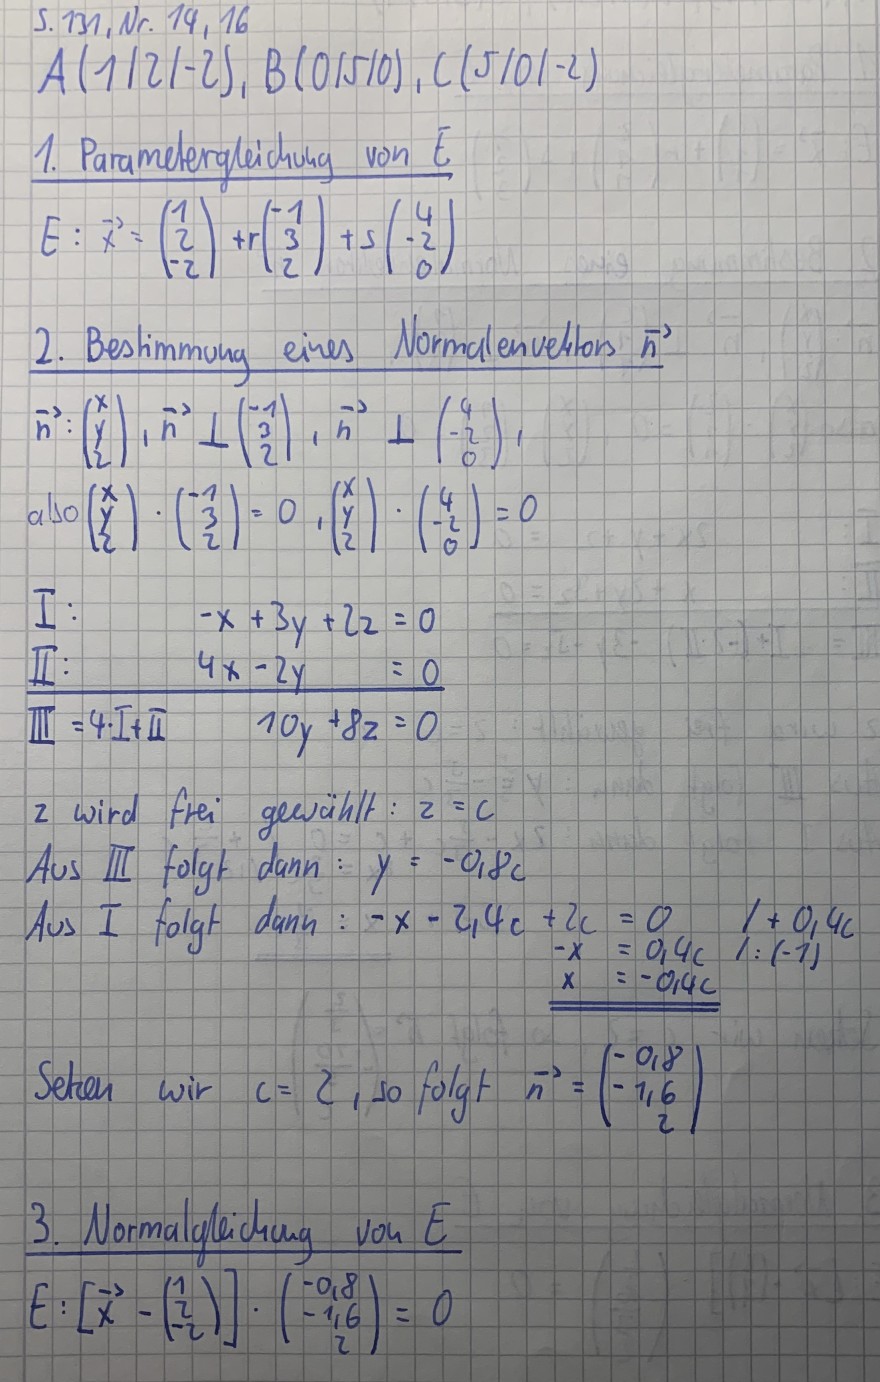 S. 131, Nr. 14, 16
A(1|2|-2), B(0|5|0), C(5|0|-2)
1. Parametergleichung von E
E: x⃗ = (1 2 -2) + r(-1 3 2) + s(4 -2 0)
2. Bestimmung eines Normalenvektors n⃗
n⃗: (x y z), n⃗ ⊥ (-1 3 2), n⃗ ⊥ (4 -2 0),
also (x y z) · (-1 3 2) = 0, (x y z) · (4 -2 0) = 0
I: -x + 3y + 2z = 0
II: 4x - 2y = 0
III = 4·I+II 10y + 8z = 0
z wird frei gewählt: z = c
Aus III folgt dann: y = -0,8c
Aus I folgt dann: -x - 2,4c + 2c = 0 /+ 0,4c
-x = 0,4c /:(-1)
x = -0,4c
Setzen wir c = 2, so folgt n⃗ = (-0,8 -1,6 2)
3. Normalgleichung von E
E: [x⃗ - (1 2 -2)] · (-0,8 -1,6 2) = 0